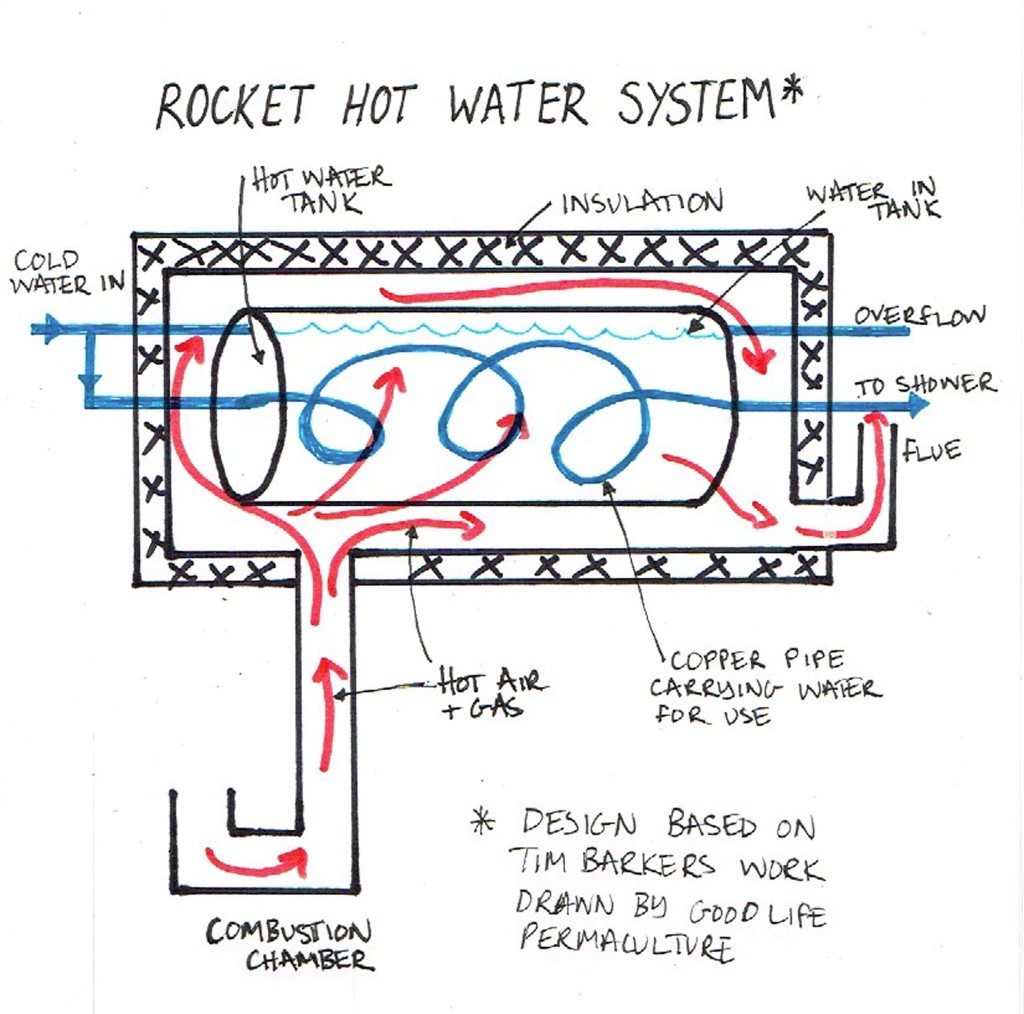 ROCKET HOT WATER SYSTEM*
HOT WATER
TANK
INSULATION
WATER IN
TANK
COLD
WATER IN
OVERFLOW
TO SHOWER
FLUE
COPPER PIPE
CARRYING WATER
FOR USE
HOT AIR
+ GAS
* DESIGN BASED ON
TIM BARKERS WORK
DRAWN BY GOOD LIFE
PERMACULTURE
COMBUSTION
CHAMBER